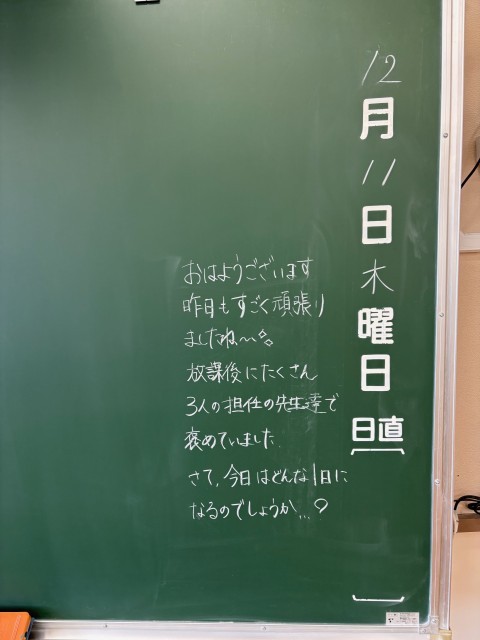 12月11日木曜日
日直
おはようございます
昨日もすごく頑張り
ましたね〜
放課後にたくさん
3人の担任の先生達で
褒めていました.
さて,今日はどんな1日に
なるのでしょうか...?